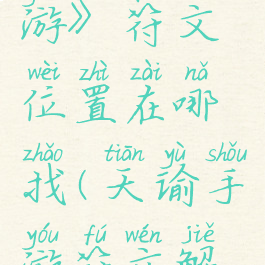 游》符文
wèi zhì zài nǎ
位置在哪
zhǎo tiān yù shǒu
找(天谕手
yóu fú wén jiě
游符文解